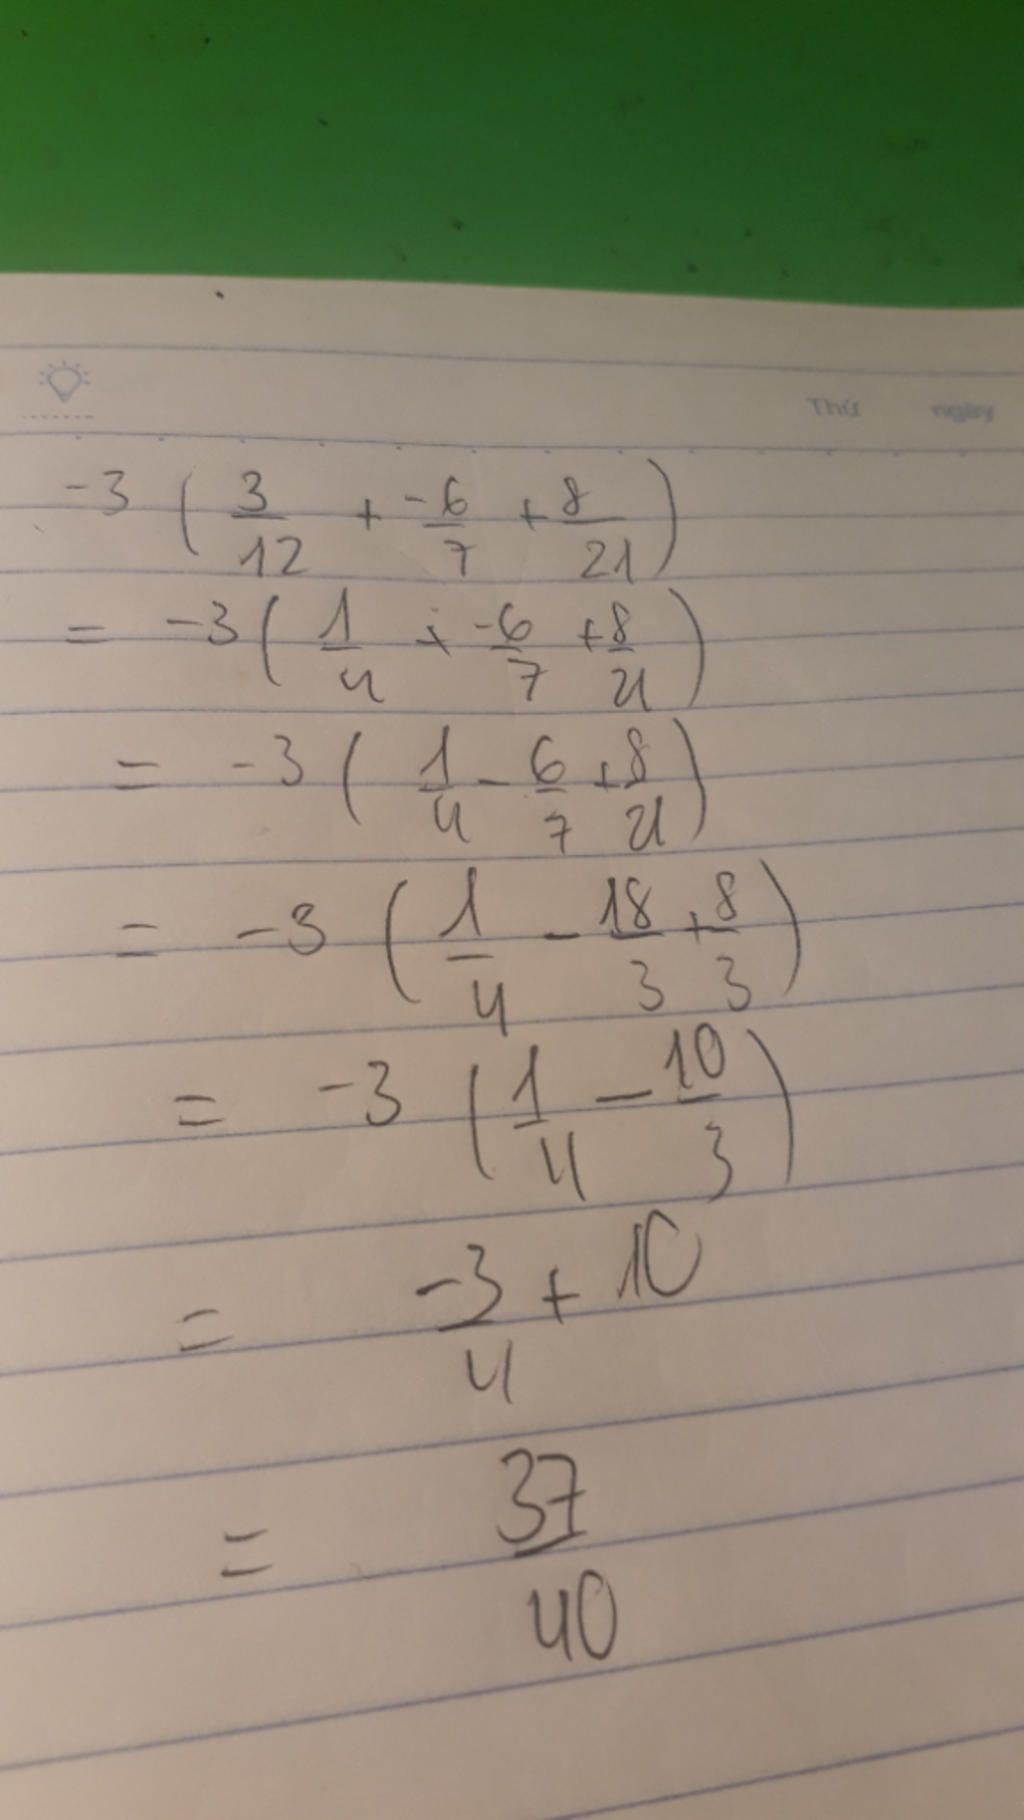 Thứ ngày
-3 ( 3/12 + -6/7 + 8/21 )
= -3 ( 1/4 + -6/7 + 8/21 )
= -3 ( 1/4 - 6/7 + 8/21 )
= -3 ( 1/4 - 18/3 + 8/3 )
= -3 ( 1/4 - 10/3 )
= -3/4 + 10
= 37/40